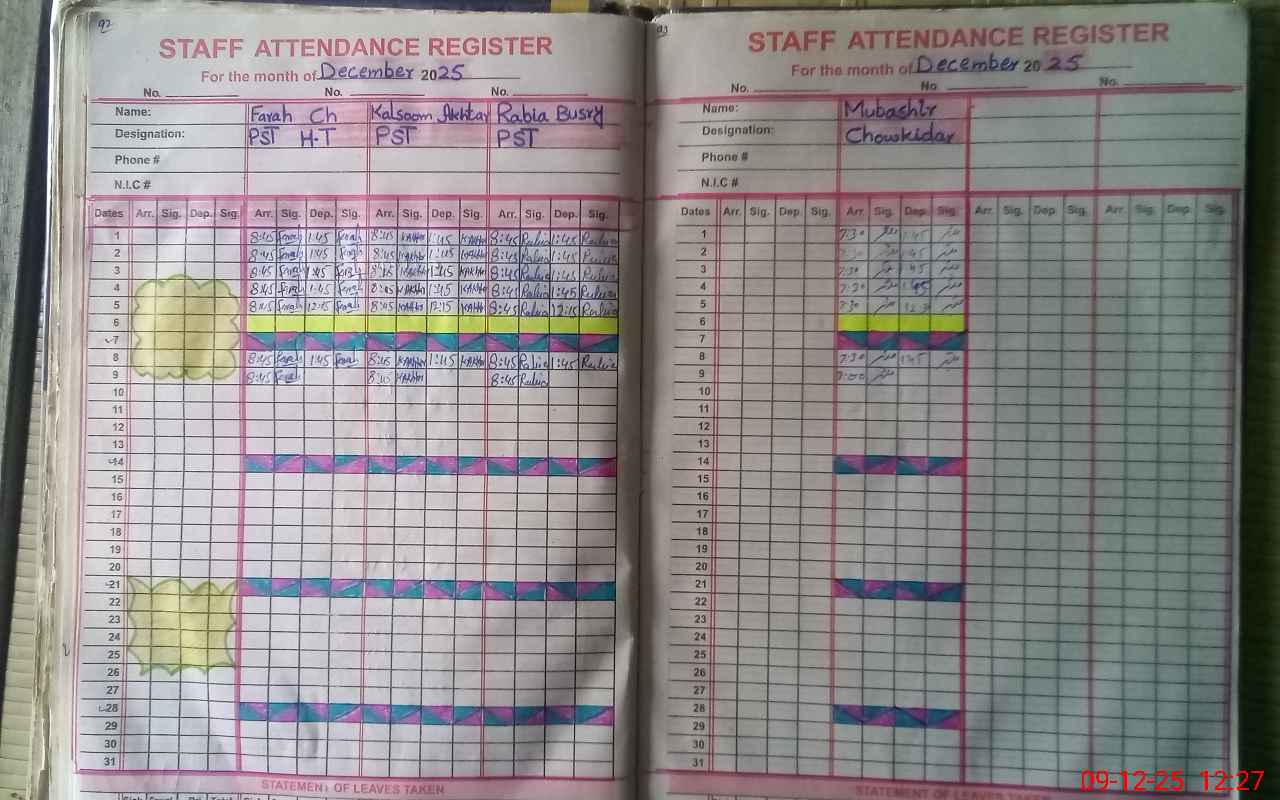 92
STAFF ATTENDANCE REGISTER
For the month of December 2025
No. No. No.
Name: Farah Ch Kalsoom Akhtar Rabia Busry
Designation: PST H-T PST PST
Phone #
N.I.C #
Dates Arr. Sig. Dep. Sig. Arr. Sig. Dep. Sig. Arr. Sig. Dep. Sig. Arr. Sig. Dep. Sig.
1 8:45 Farah 1:45 Farah 8:45 1:45 8:45 Rabia 1:45 Rabia
2 8:45 Farah 1:45 Farah 8:45 1:45 8:45 Rabia 1:45 Rabia
3 8:45 Farah 1:45 Farah 8:45 1:45 8:45 Rabia 1:45 Rabia
4 8:45 Farah 1:45 Farah 8:45 1:45 8:45 Rabia 1:45 Rabia
5 8:45 Farah 12:15 Farah 8:45 12:15 8:45 Rabia 12:15 Rabia
6
7
8 8:45 Farah 1:45 Farah 8:45 1:45 8:45 Rabia 1:45 Rabia
9 8:45 Farah 8:45 8:45 Rabia
10
11
12
13
14
15
16
17
18
19
20
21
22
23
24
25
26
27
28
29
30
31
STATEMENT OF LEAVES TAKEN
93
STAFF ATTENDANCE REGISTER
For the month of December 2025
No. No. No.
Name: Mubashir
Designation: Chowkidar
Phone #
N.I.C #
Dates Arr. Sig. Dep. Sig. Arr. Sig. Dep. Sig. Arr. Sig. Dep. Sig. Arr. Sig. Dep. Sig.
1 7:30 1:45
2 7:30 1:45
3 7:30 1:45
4 7:30 1:45
5 7:30
6
7
8 7:30 1:45
9 7:00
10
11
12
13
14
15
16
17
18
19
20
21
22
23
24
25
26
27
28
29
30
31
STATEMENT OF LEAVES TAKEN
09-12-25 12:27